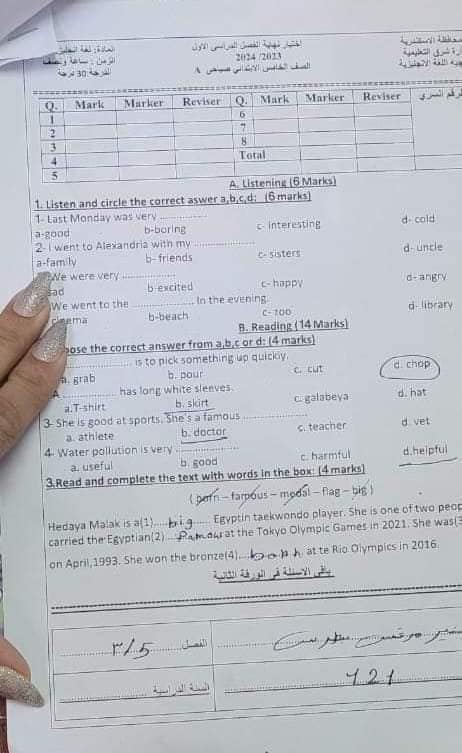 اختبار نهاية الفصل الدراسي الأول
2024 /2023
الصف الخامس الابتدائي صباحي A
المادة: لغة انجليزية
الزمن: ساعة ونصف
الدرجة 30 درجة
محافظة الاسكندرية
شرق التعليمية
اللغة الانجليزية
Q. Mark Marker Reviser Q. Mark Marker Reviser السري
1 6
2 7
3 8
4 Total
5
A. Listening (6 Marks)
1. Listen and circle the correct aswer a,b,c,d: (6 marks)
1- Last Monday was very ..............
a-good b-boring c- interesting d- cold
2- I went to Alexandria with my ..................
a-family b- friends c- sisters d- uncle
We were very ...............
sad b-excited c- happy d- angry
We went to the .................. In the evening.
cinema b-beach c- zoo d- library
B. Reading (14 Marks)
the correct answer from a,b,c or d: (4 marks)
.................. is to pick something up quickly.
a. grab b. pour c. cut d. chop
A .............. has long white sleeves.
a.T-shirt b. skirt c. galabeya d. hat
3- She is good at sports. She's a famous ..................
a. athlete b. doctor c. teacher d. vet
4- Water pollution is very ..................
a. useful b. good c. harmful d.helpful
3.Read and complete the text with words in the box: (4 marks)
( born – famous – medal – flag – big )
Hedaya Malak is a(1)....big..... Egyptin taekwondo player. She is one of two
carried the Egyptian(2)...Famous at the Tokyo Olympic Games in 2021. She was(3
on April,1993. She won the bronze(4)....born at te Rio Olympics in 2016.
باقى الاسئلة في الورقة الثانية
الفصل ٣/5
السنة الدراسية